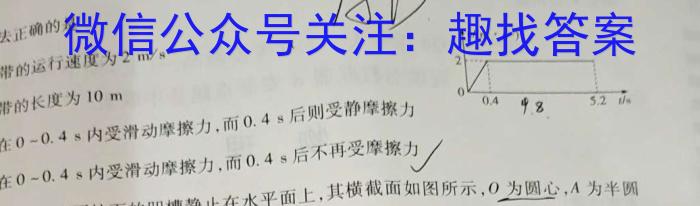 法正确的是
微信公众号关注：趣找答案
带的运行速度为2 m/s
带的长度为10 m
2
0
0.4
4.8
5.2
t/s
在0~0.4 s内受滑动摩擦力，而0.4 s后则受静摩擦力
在0~0.4 s内受滑动摩擦力，而0.4 s后不再受摩擦力
的凹槽静止在水平面上，其横截面如图所示，O为圆心，A为半圆